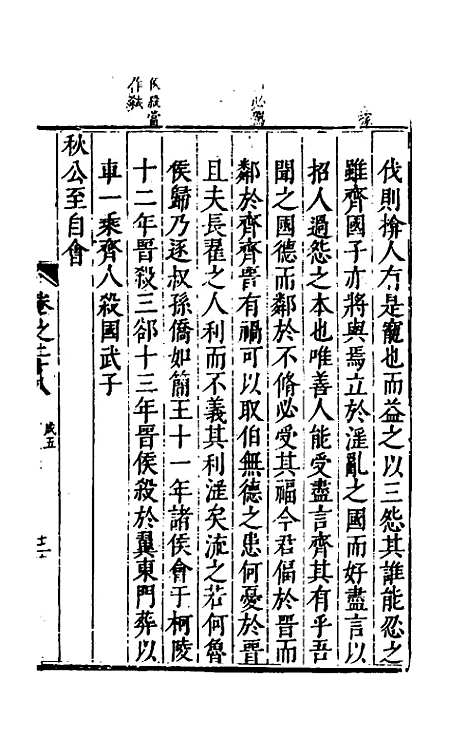 伐則揜人有是寵也而益之以三怨其誰能忍之
雖齊國子亦將與焉立於淫亂之國而好盡言以
招人過怨之本也唯善人能受盡言齊其有乎吾
聞之國德而鄰於不脩必受其福今君偪於晉而
鄰於齊齊晉有禍可以取伯無德之患何憂於晉
且夫長翟之人利而不義其利淫矣流之若何魯
侯歸乃逐叔孫僑如簡王十一年諸侯會于柯陵
十二年晉殺三郤十三年晉侯殺於翼東門葬以
車一乘齊人殺國武子
秋公至自會
卷之二十八
成五
侯殺當
作弒